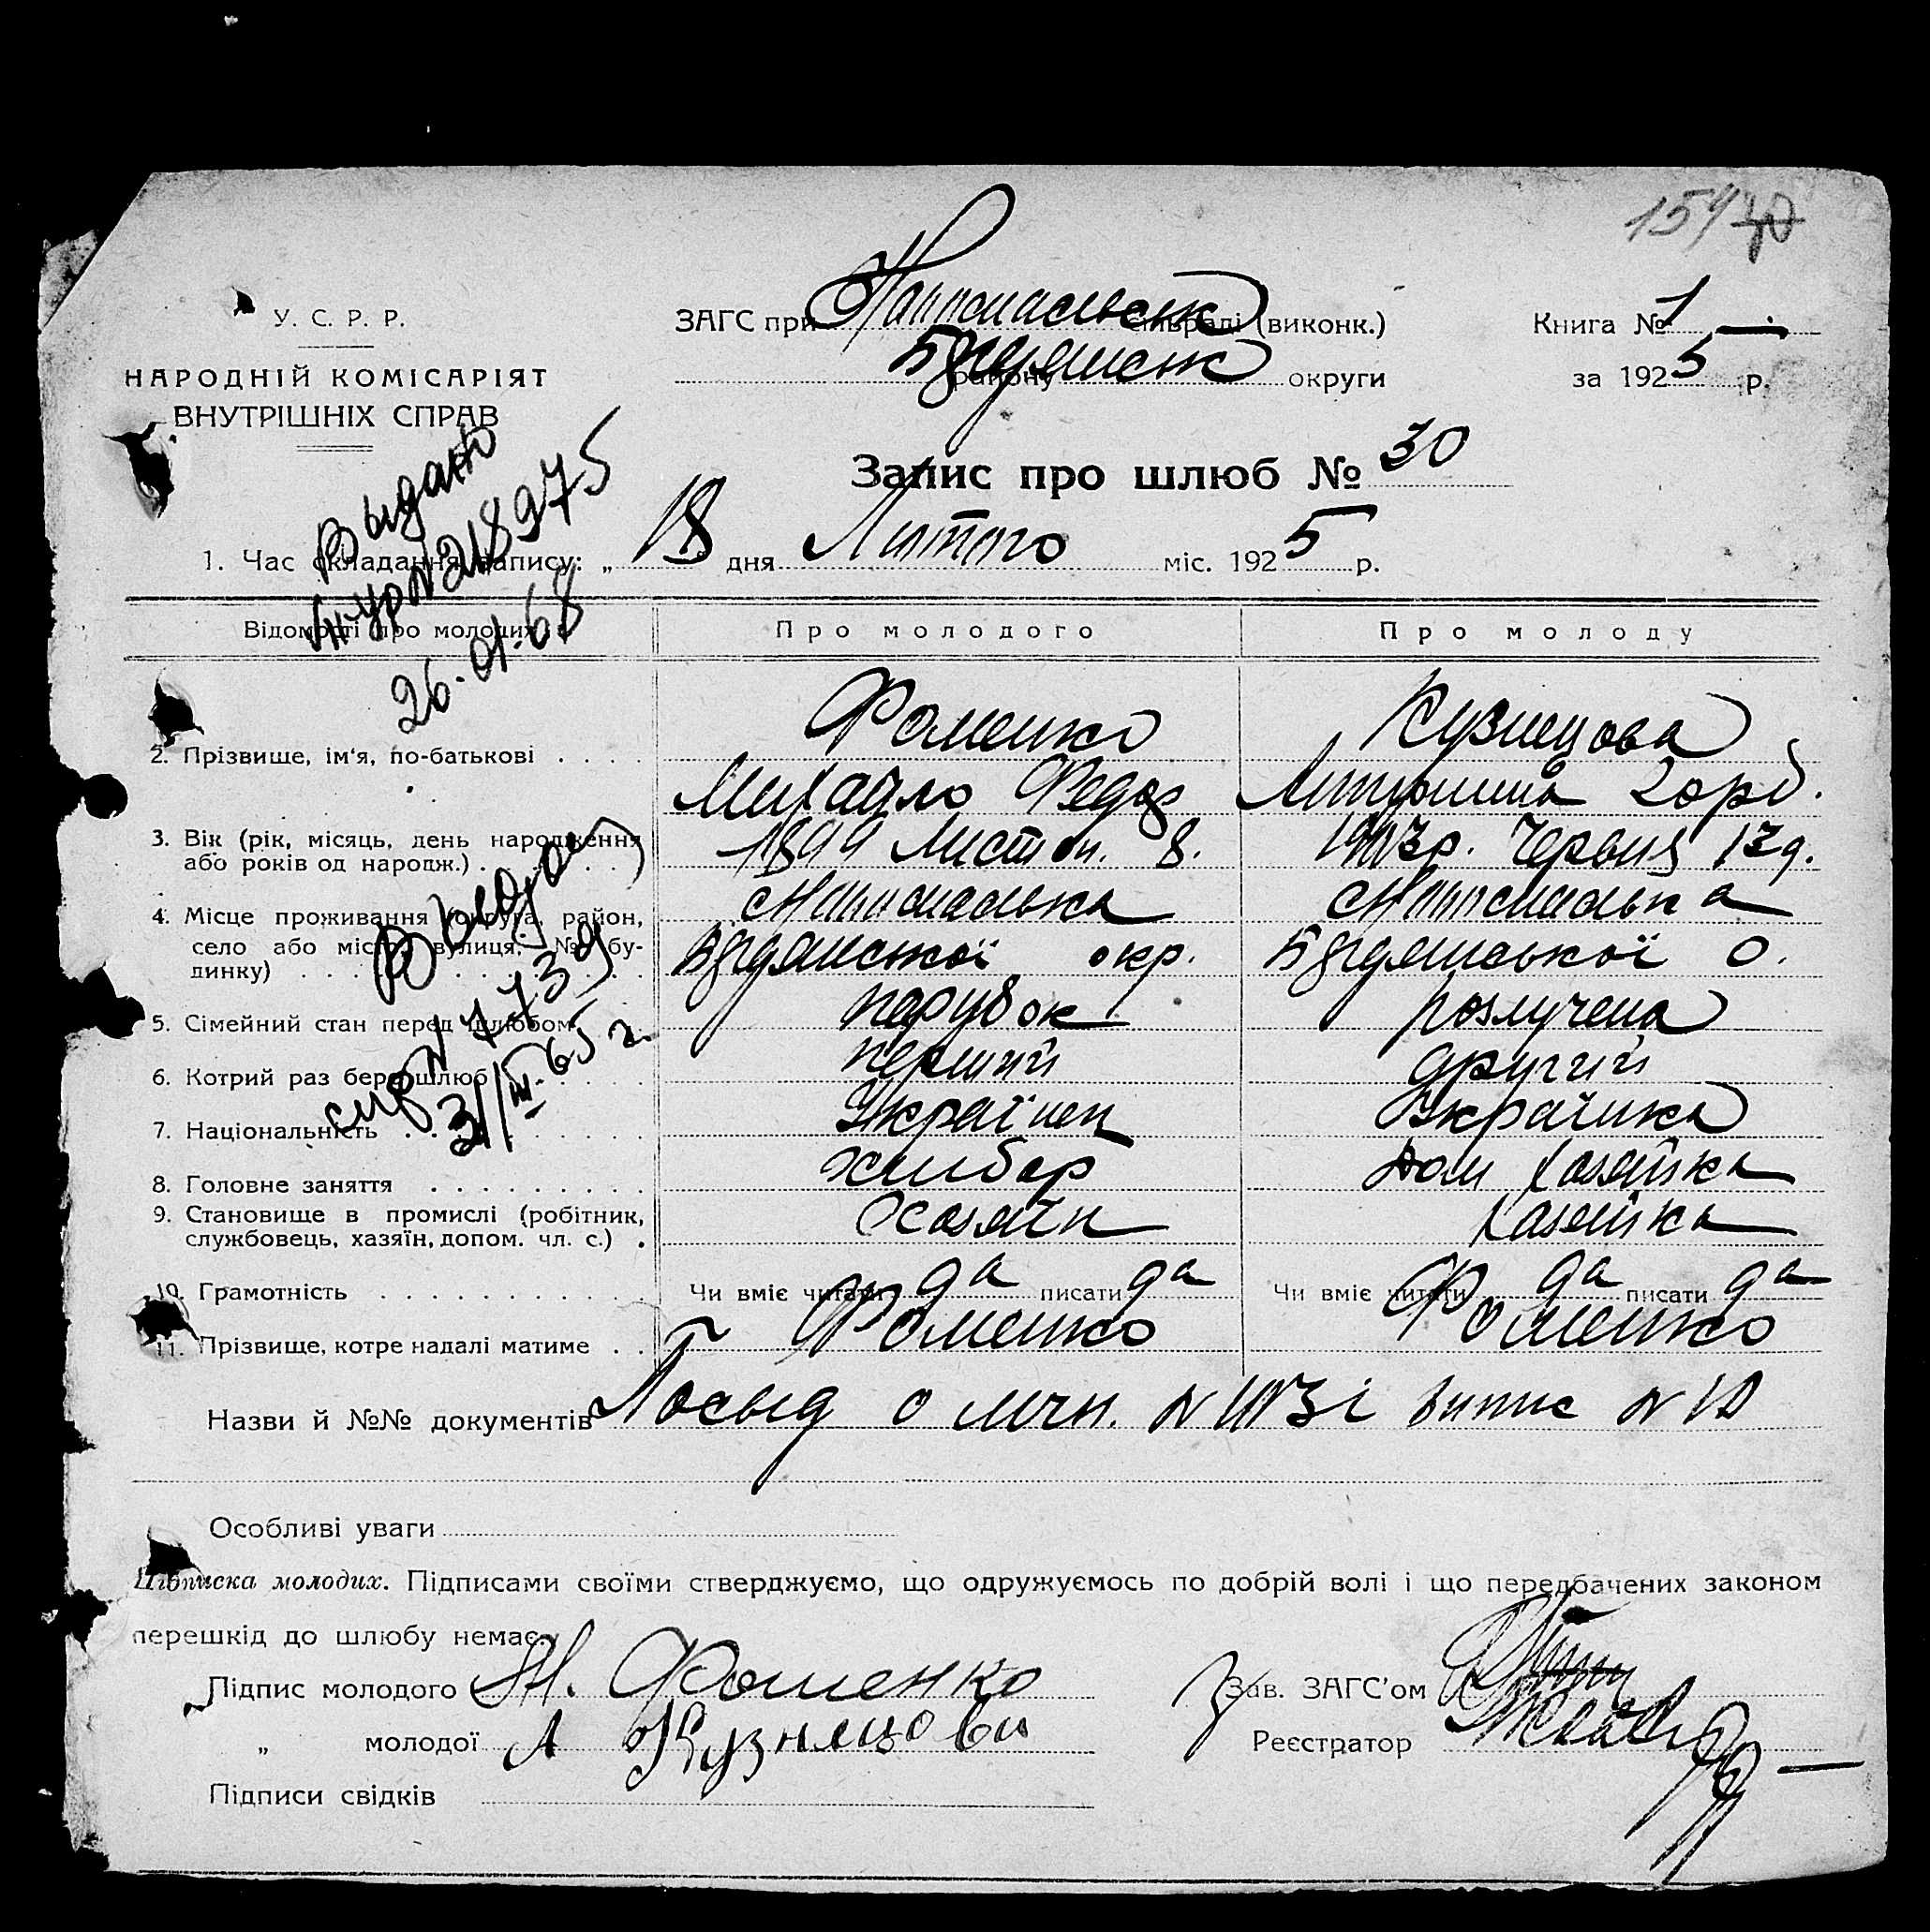 154 40
У. С. Р. Р.
НАРОДНІЙ КОМІСАРІЯТ
ВНУТРІШНІХ СПРАВ
ЗАГС при сільраді (виконк.)
району Бердянськ округи
Книга № 1
за 1925 р.
Запис про шлюб № 30
Видано
26-01-68
1. Час складання запису: „ 18 дня Лютого міс. 1925 р.
Відомості про молодих
Про молодого
Про молоду
2. Прізвище, ім'я, по-батькові
Фоменко
Михайло Федор
Кузнецова
3. Вік (рік, місяць, день народження
або років од народж.)
1899 Листоп. 8.
Червня 13 д.
4. Місце проживання (округа, район,
село або місто, вулиця, № бу-
динку)
Бердянської окр.
Бердянської о.
5. Сімейний стан перед шлюбом
парубок
розлучена
6. Котрий раз бере шлюб
перший
другий
7. Національність
Українец
Українка
8. Головне заняття
хлибор
Дом хазяйка
9. Становище в промислі (робітник,
службовець, хазяїн, допом. чл. с.)
Хазяїн
Хазяйка
10. Грамотність
Чи вміє читати да писати да
Чи вміє читати да писати да
11. Прізвище, котре надалі матиме
Фоменко
Фоменко
Назви й №№ документів Посвід о випис №
Особливі уваги
Підписка молодих. Підписами своїми стверджуємо, що одружуємось по добрій волі і що передбачених законом
перешкід до шлюбу немає.
Підпис молодого М. Фоменко
„ молодої А Кузнецова
Підписи свідків
Зав. ЗАГС'ом
Реєстратор